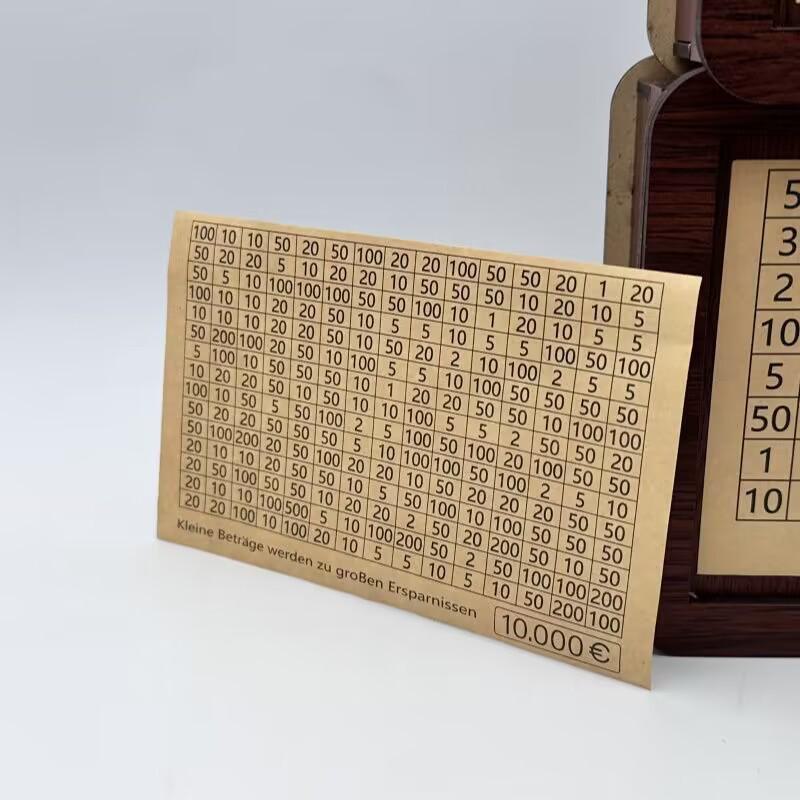 100 10 10 50 20 50 100 20 20 100 50 50 20 1 20
50 20 20 5 10 20 20 10 50 50 50 10 20 10 5
50 5 10 100 100 100 50 50 100 10 1 20 10 5 5
100 10 10 20 20 50 10 5 5 10 5 5 100 50 100
10 10 10 20 50 10 50 20 2 10 100 2 5 5
50 200 100 20 50 10 100 5 5 10 100 50 50 50 50
5 100 10 50 50 50 10 1 20 20 50 50 10 100 100
10 20 20 50 50 10 10 100 5 5 2 50 50 20
100 10 50 5 50 100 2 5 100 50 100 20 100 50 50
50 20 20 50 50 50 5 10 100 100 50 100 2 5 10
50 100 200 20 50 100 20 20 10 50 20 20 20 50 50
20 10 10 20 50 10 5 50 100 10 100 50 10 50 50
20 50 100 50 50 10 20 20 2 50 20 200 50 10 50
20 10 10 100 500 5 10 100 200 50 2 50 100 100 200
20 20 100 10 100 20 10 5 5 10 5 10 50 200 100
Kleine Beträge werden zu großen Ersparnissen
10.000 €
5
3
2
10
5
50
1
10